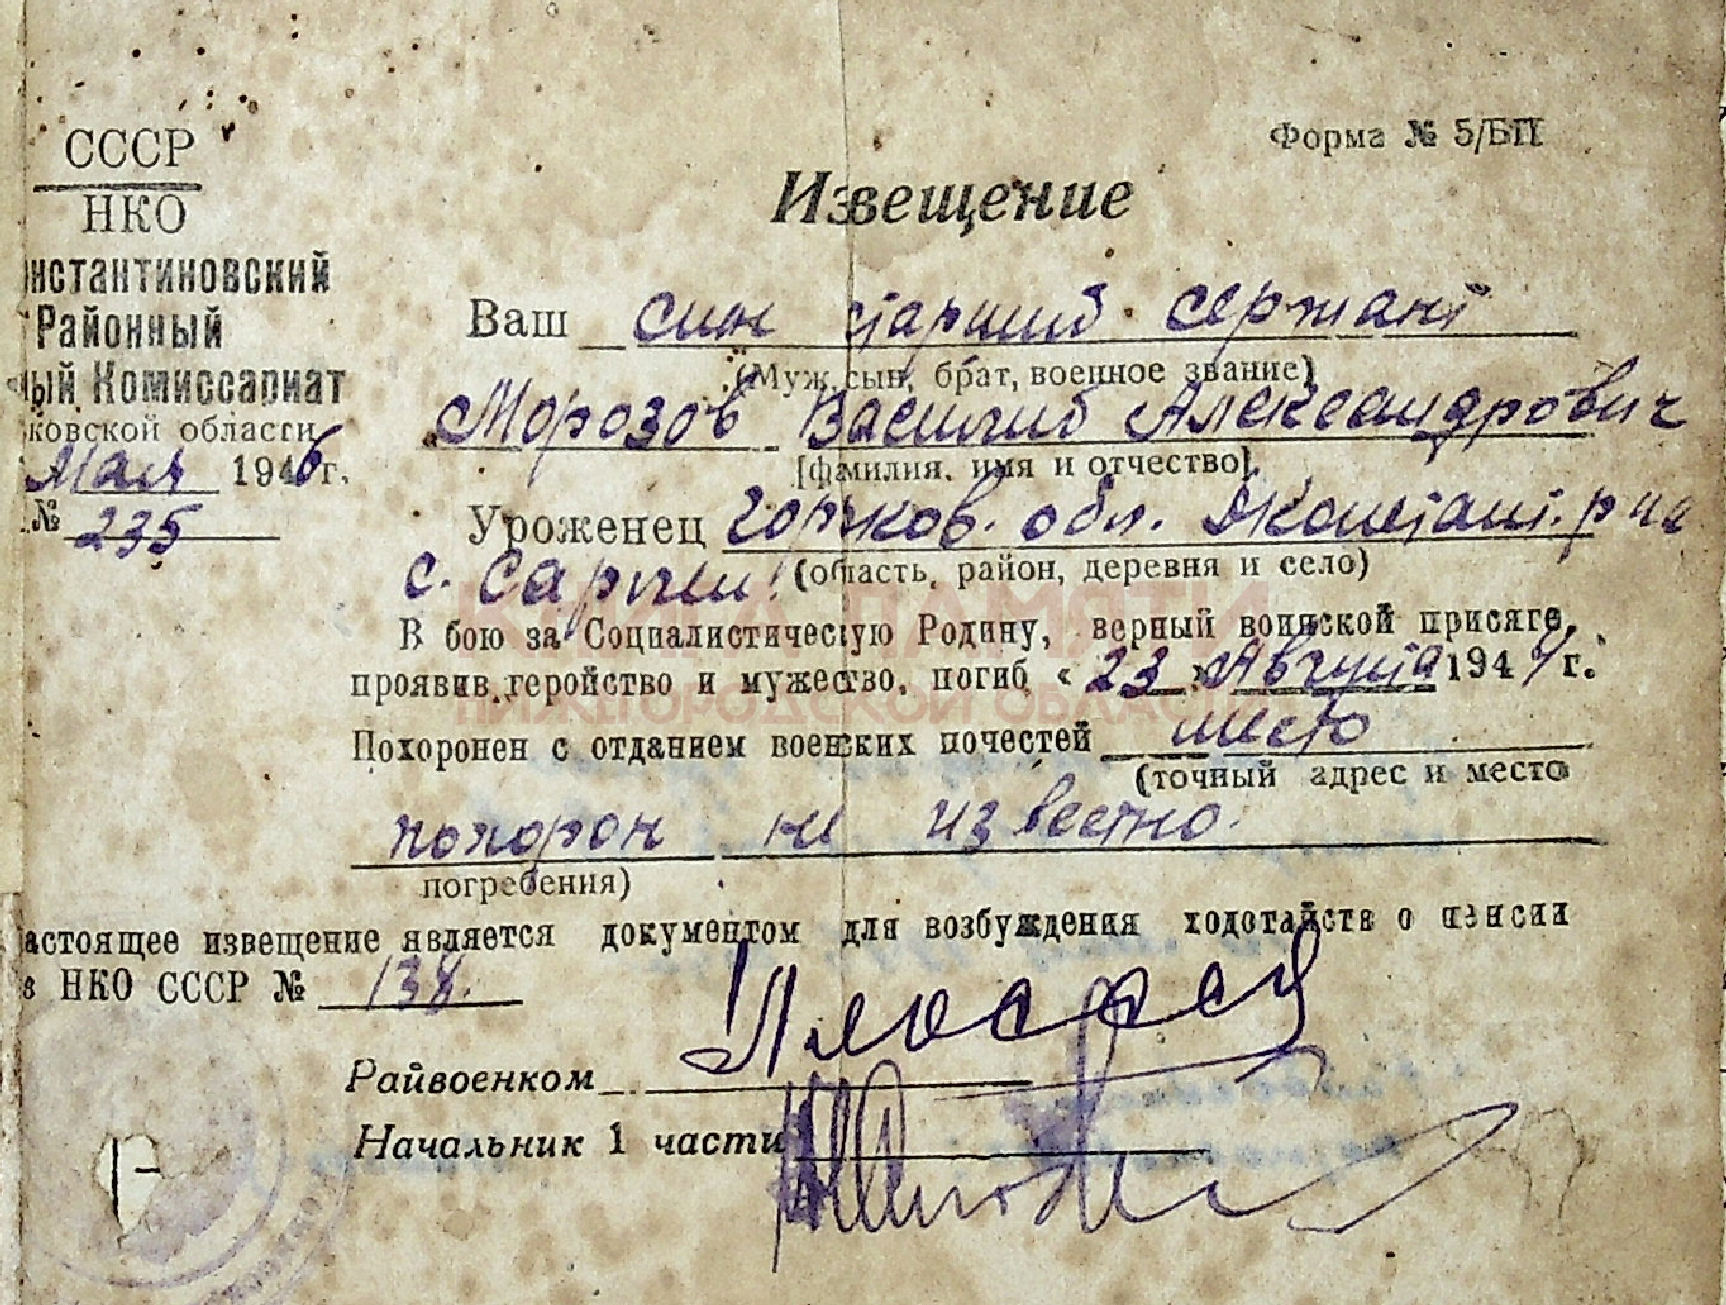 СССР
НКО
нстантиновский
Районный
ный Комиссариат
ковской области
Мая 1946 г.
№ 235
Форма № 5/БП
Извещение
Ваш сын старший сержант
(Муж, сын, брат, военное звание)
Морозов Василий Александрович
[фамилия, имя и отчество]
Уроженец Горьков. обл. Дконстант. р-на
(область, район, деревня и село)
с.
КНИГА ПАМЯТИ
НИЖЕГОРОДСКОЙ ОБЛАСТИ
В бою за Социалистическую Родину, верный воинской присяге,
проявив геройство и мужество, погиб « 23 » Августа 1944 г.
Похоронен с отданием военских почестей место
(точный адрес и место
похорон не известно.
погребения)
астоящее извещение является документом для возбуждения ходотайств о пенсии
в НКО СССР № 138.
Райвоенком
Начальник 1 части